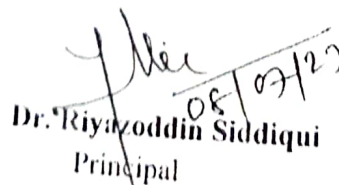 08/07/27
Dr. Riyazoddin Siddiqui
Principal